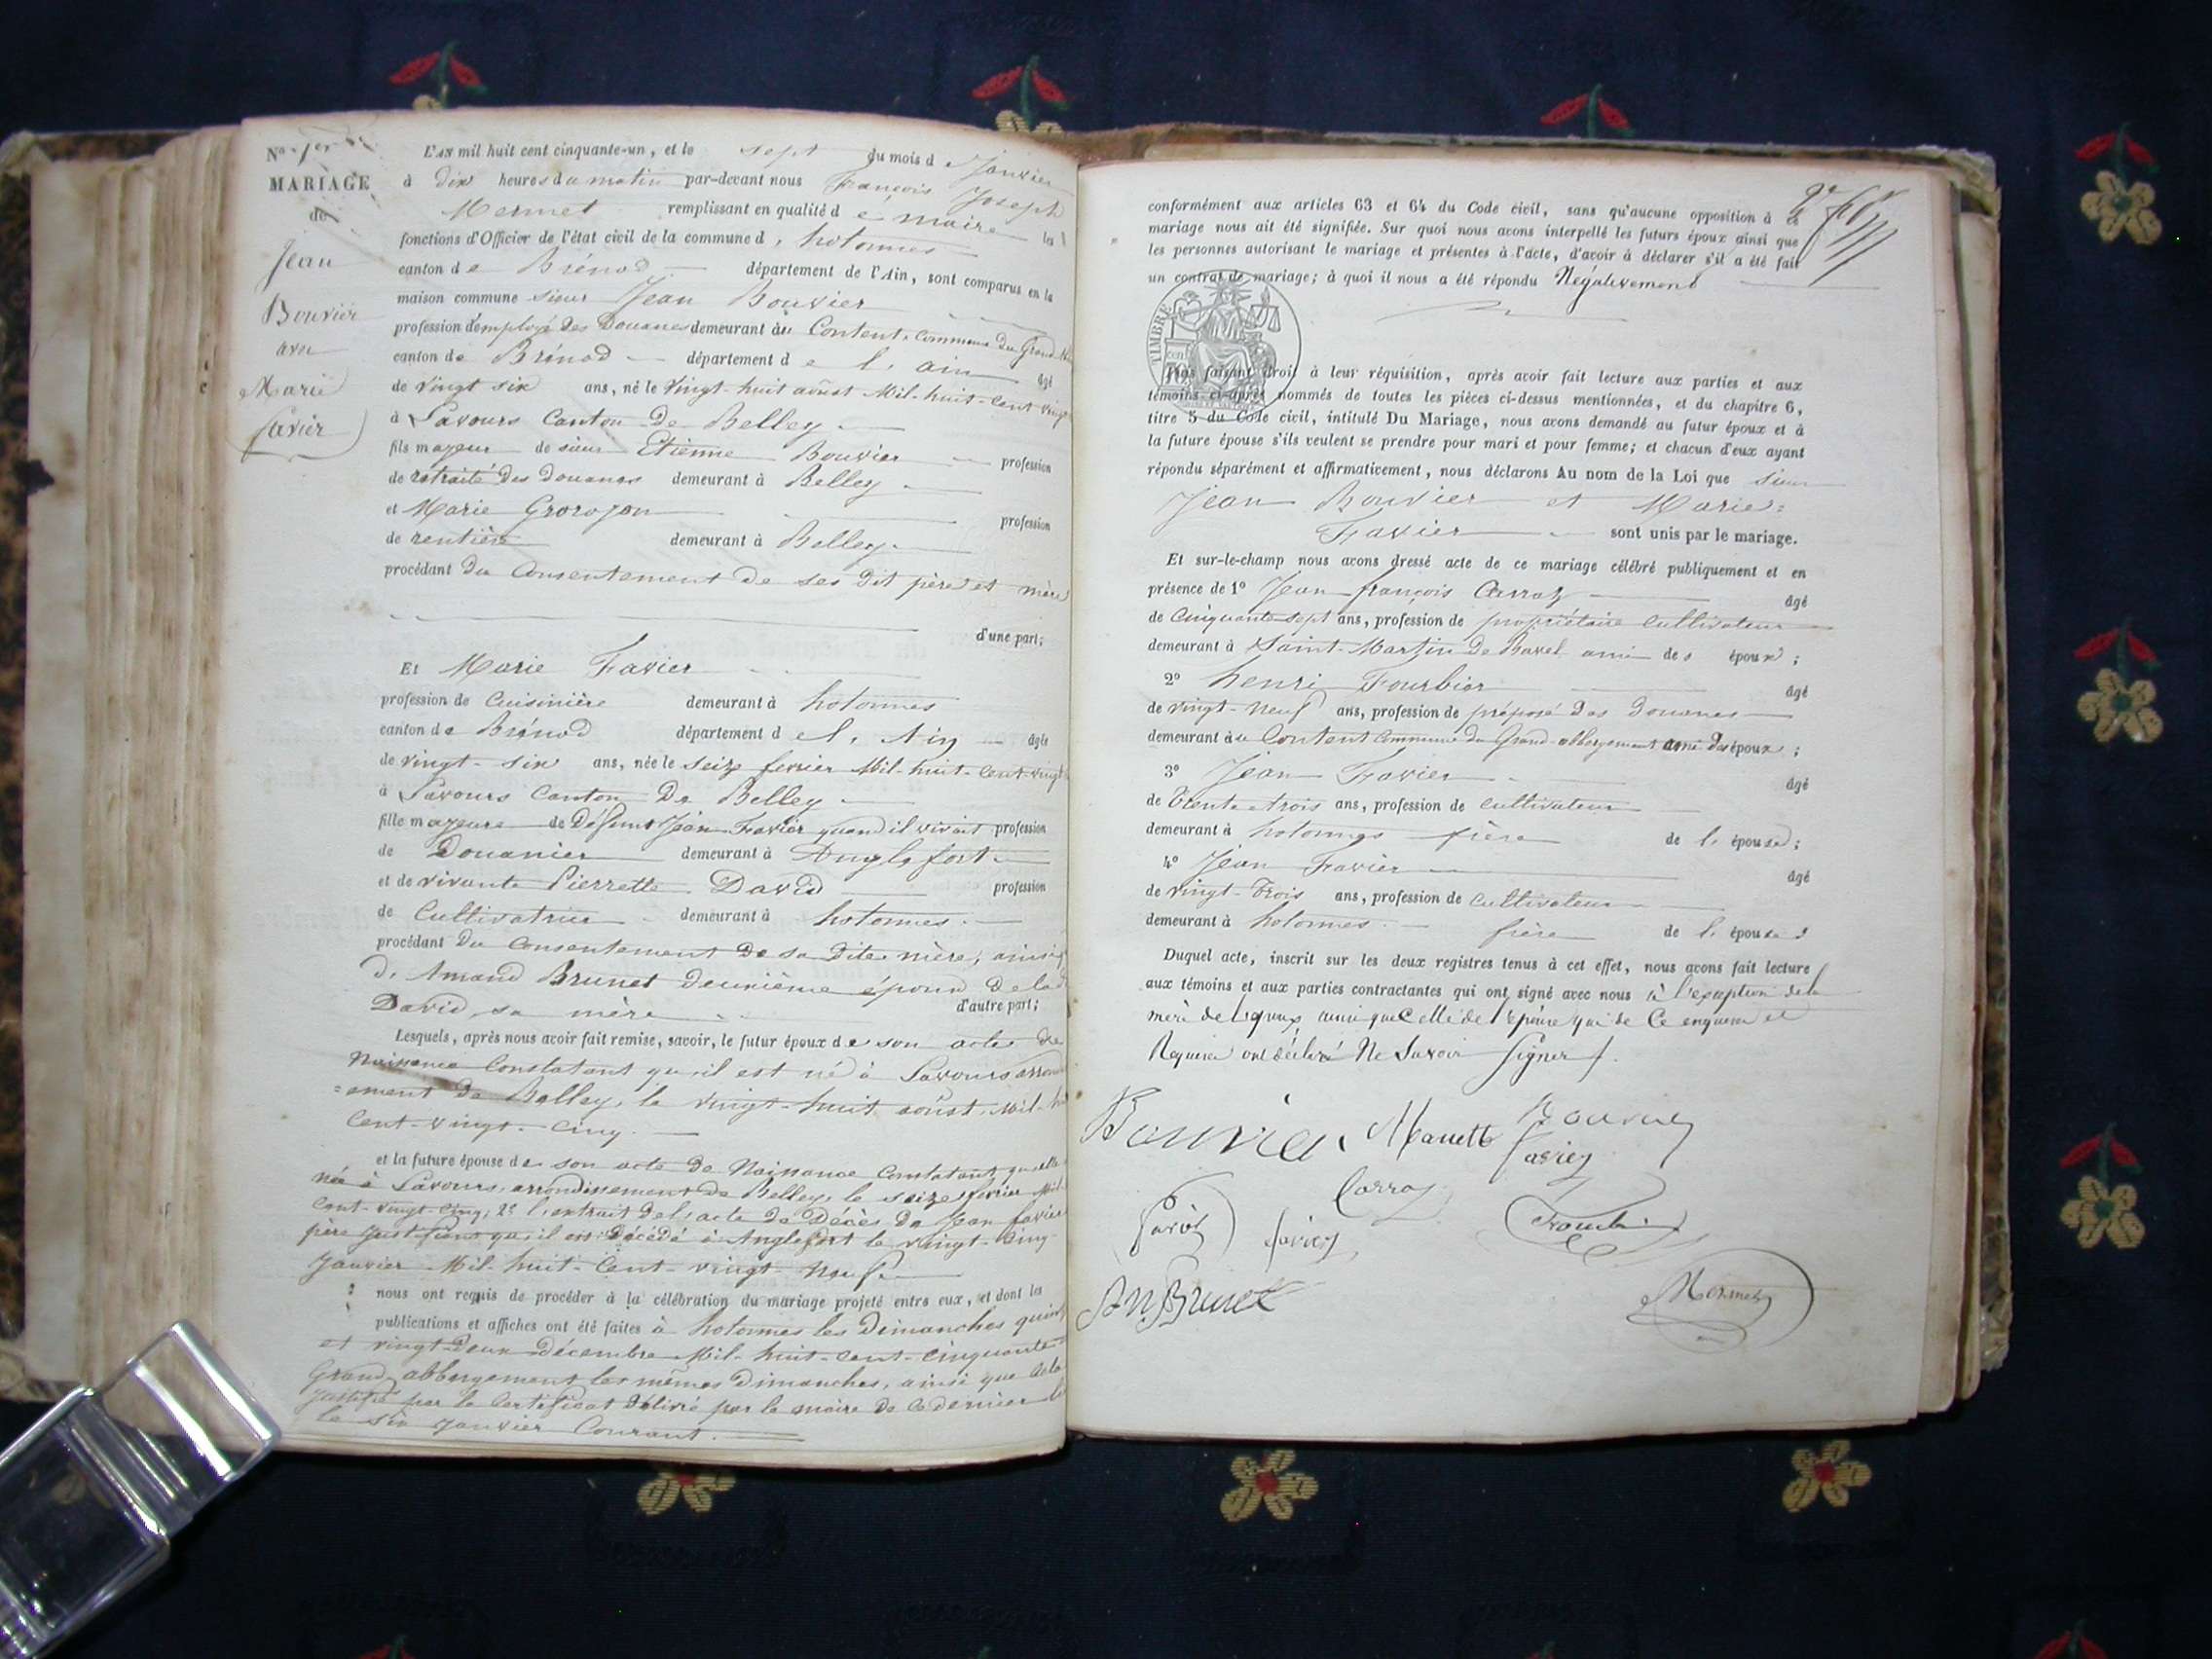 No 1er
MARIAGE
de
Jean
Bouvier
avec
Marie
Favier
L'AN mil huit cent cinquante-un, et le sept du mois de Janvier
à dix heures du matin par-devant nous François Joseph
Mermet remplissant en qualité de maire les
fonctions d'Officier de l'état civil de la commune d, hotonnes
canton de Brénod département de l'Ain, sont comparus en la
maison commune sieur Jean Bouvier
profession d'employé des Douanes demeurant au Content, Commune du Grand
canton de Brénod département de l'ain âgé
de vingt six ans, né le vingt-huit août Mil-huit-cent vingt
à Lavours Canton De Belley
fils majeur de sieur Etienne Bouvier profession
de retraité des Douanes demeurant à Belley
et Marie profession
de rentière demeurant à Belley
procédant du Consentement de ses dit père et mère
d'une part;
Et Marie Favier
profession de Cuisinière demeurant à hotonnes
canton de Brénod département de l'Ain âgée
de vingt-six ans, née le seize fevrier Mil-huit-cent-vingt
à Lavours Canton De Belley
fille majeure de Défunt Jean Favier quand il vivait profession
de Douanier demeurant à Anglefort
et de vivante Pierrette David profession
de Cultivatrice demeurant à hotonnes
procédant du Consentement de sa dite mère, ainsi q
d, Amand Brunet deuxième époux de la d
David, sa mère d'autre part;
Lesquels, après nous avoir fait remise, savoir, le futur époux de son acte de
Naissance Constatant qu'il est né à Lavours arrond
=ement de Belley, le vingt-huit août, Mil-h
Cent-vingt-Cinq.
et la future épouse de son acte de Naissance Constatant qu'elle
née à Lavours, arrondissement de Belley, le seize fevrier Mil
Cent-vingt-Cinq; 2º l'extrait de l'acte de Décès de Jean favier
père qu'il est Décédé à Anglefort le vingt-Cinq
Janvier Mil-huit-Cent-vingt-Neuf
nous ont requis de procéder à la célébration du mariage projeté entre eux, et dont les
publications et affiches ont été faites à hotonnes les Dimanches quinze
et vingt-Deux Décembre Mil-huit-cent-Cinquante
Grand abbergement les mêmes Dimanches, ainsi que cela
justifié par le Certificat délivré par le maire de ce dernier
le six Janvier Courant.
conformément aux articles 63 et 64 du Code civil, sans qu'aucune opposition à ce
mariage nous ait été signifiée. Sur quoi nous avons interpellé les futurs époux ainsi que
les personnes autorisant le mariage et présentes à l'acte, d'avoir à déclarer s'il a été fait
un contrat de mariage; à quoi il nous a été répondu Négativement
TIMBRE
Puis faisant droit à leur réquisition, après avoir fait lecture aux parties et aux
témoins ci-après nommés de toutes les pièces ci-dessus mentionnées, et du chapitre 6,
titre 5 du Code civil, intitulé Du Mariage, nous avons demandé au futur époux et à
la future épouse s'ils veulent se prendre pour mari et pour femme; et chacun d'eux ayant
répondu séparément et affirmativement, nous déclarons Au nom de la Loi que sieur
Jean Bouvier et Marie
Favier sont unis par le mariage.
Et sur-le-champ nous avons dressé acte de ce mariage célébré publiquement et en
présence de 1º Jean-françois Carraz âgé
de Cinquante sept ans, profession de propriétaire Cultivateur
demeurant à Saint-Martin De Bavel ami des époux;
2º henri Fourbier âgé
de vingt-Neuf ans, profession de préposé des Douanes
demeurant au Content Commune du Grand-abbergement ami des époux;
3º Jean Favier âgé
de Trente-trois ans, profession de Cultivateur
demeurant à hotonnes frère de l, épouse;
4º Jean Favier âgé
de vingt-Trois ans, profession de Cultivateur
demeurant à hotonnes frère de l, épouse
Duquel acte, inscrit sur les deux registres tenus à cet effet, nous avons fait lecture
aux témoins et aux parties contractantes qui ont signé avec nous à l'exception de la
mère de l'époux ainsi que Celle de l'épouse qui de Ce enquises et
Requises ont déclaré Ne Savoir Signer
Bouvier Mariette Bouvier
favier
Carraz
favier
Mermet
Brunet